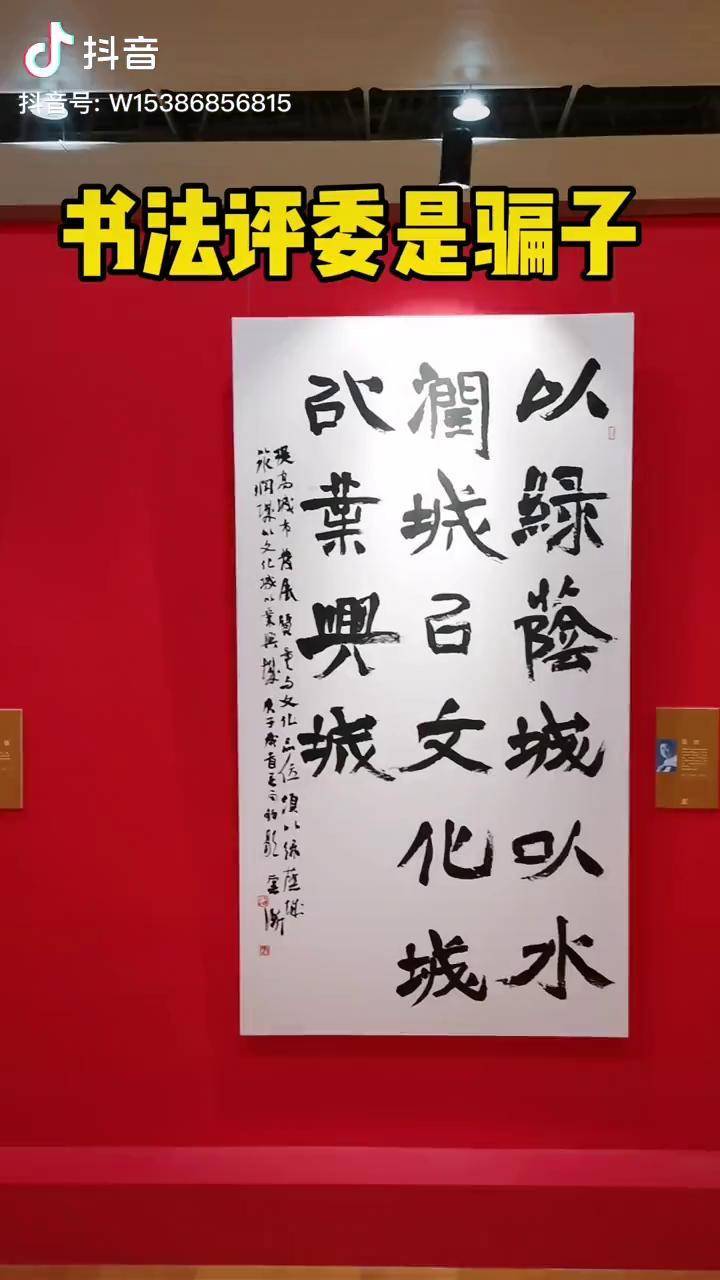 抖音
抖音号: W15386856815
书法评委是骗子
以綠蔭城以水
潤城㠯文化城
以業興城
提高城市發展質量与文化品位須以綠蔭城
以文化城以業興城庚子